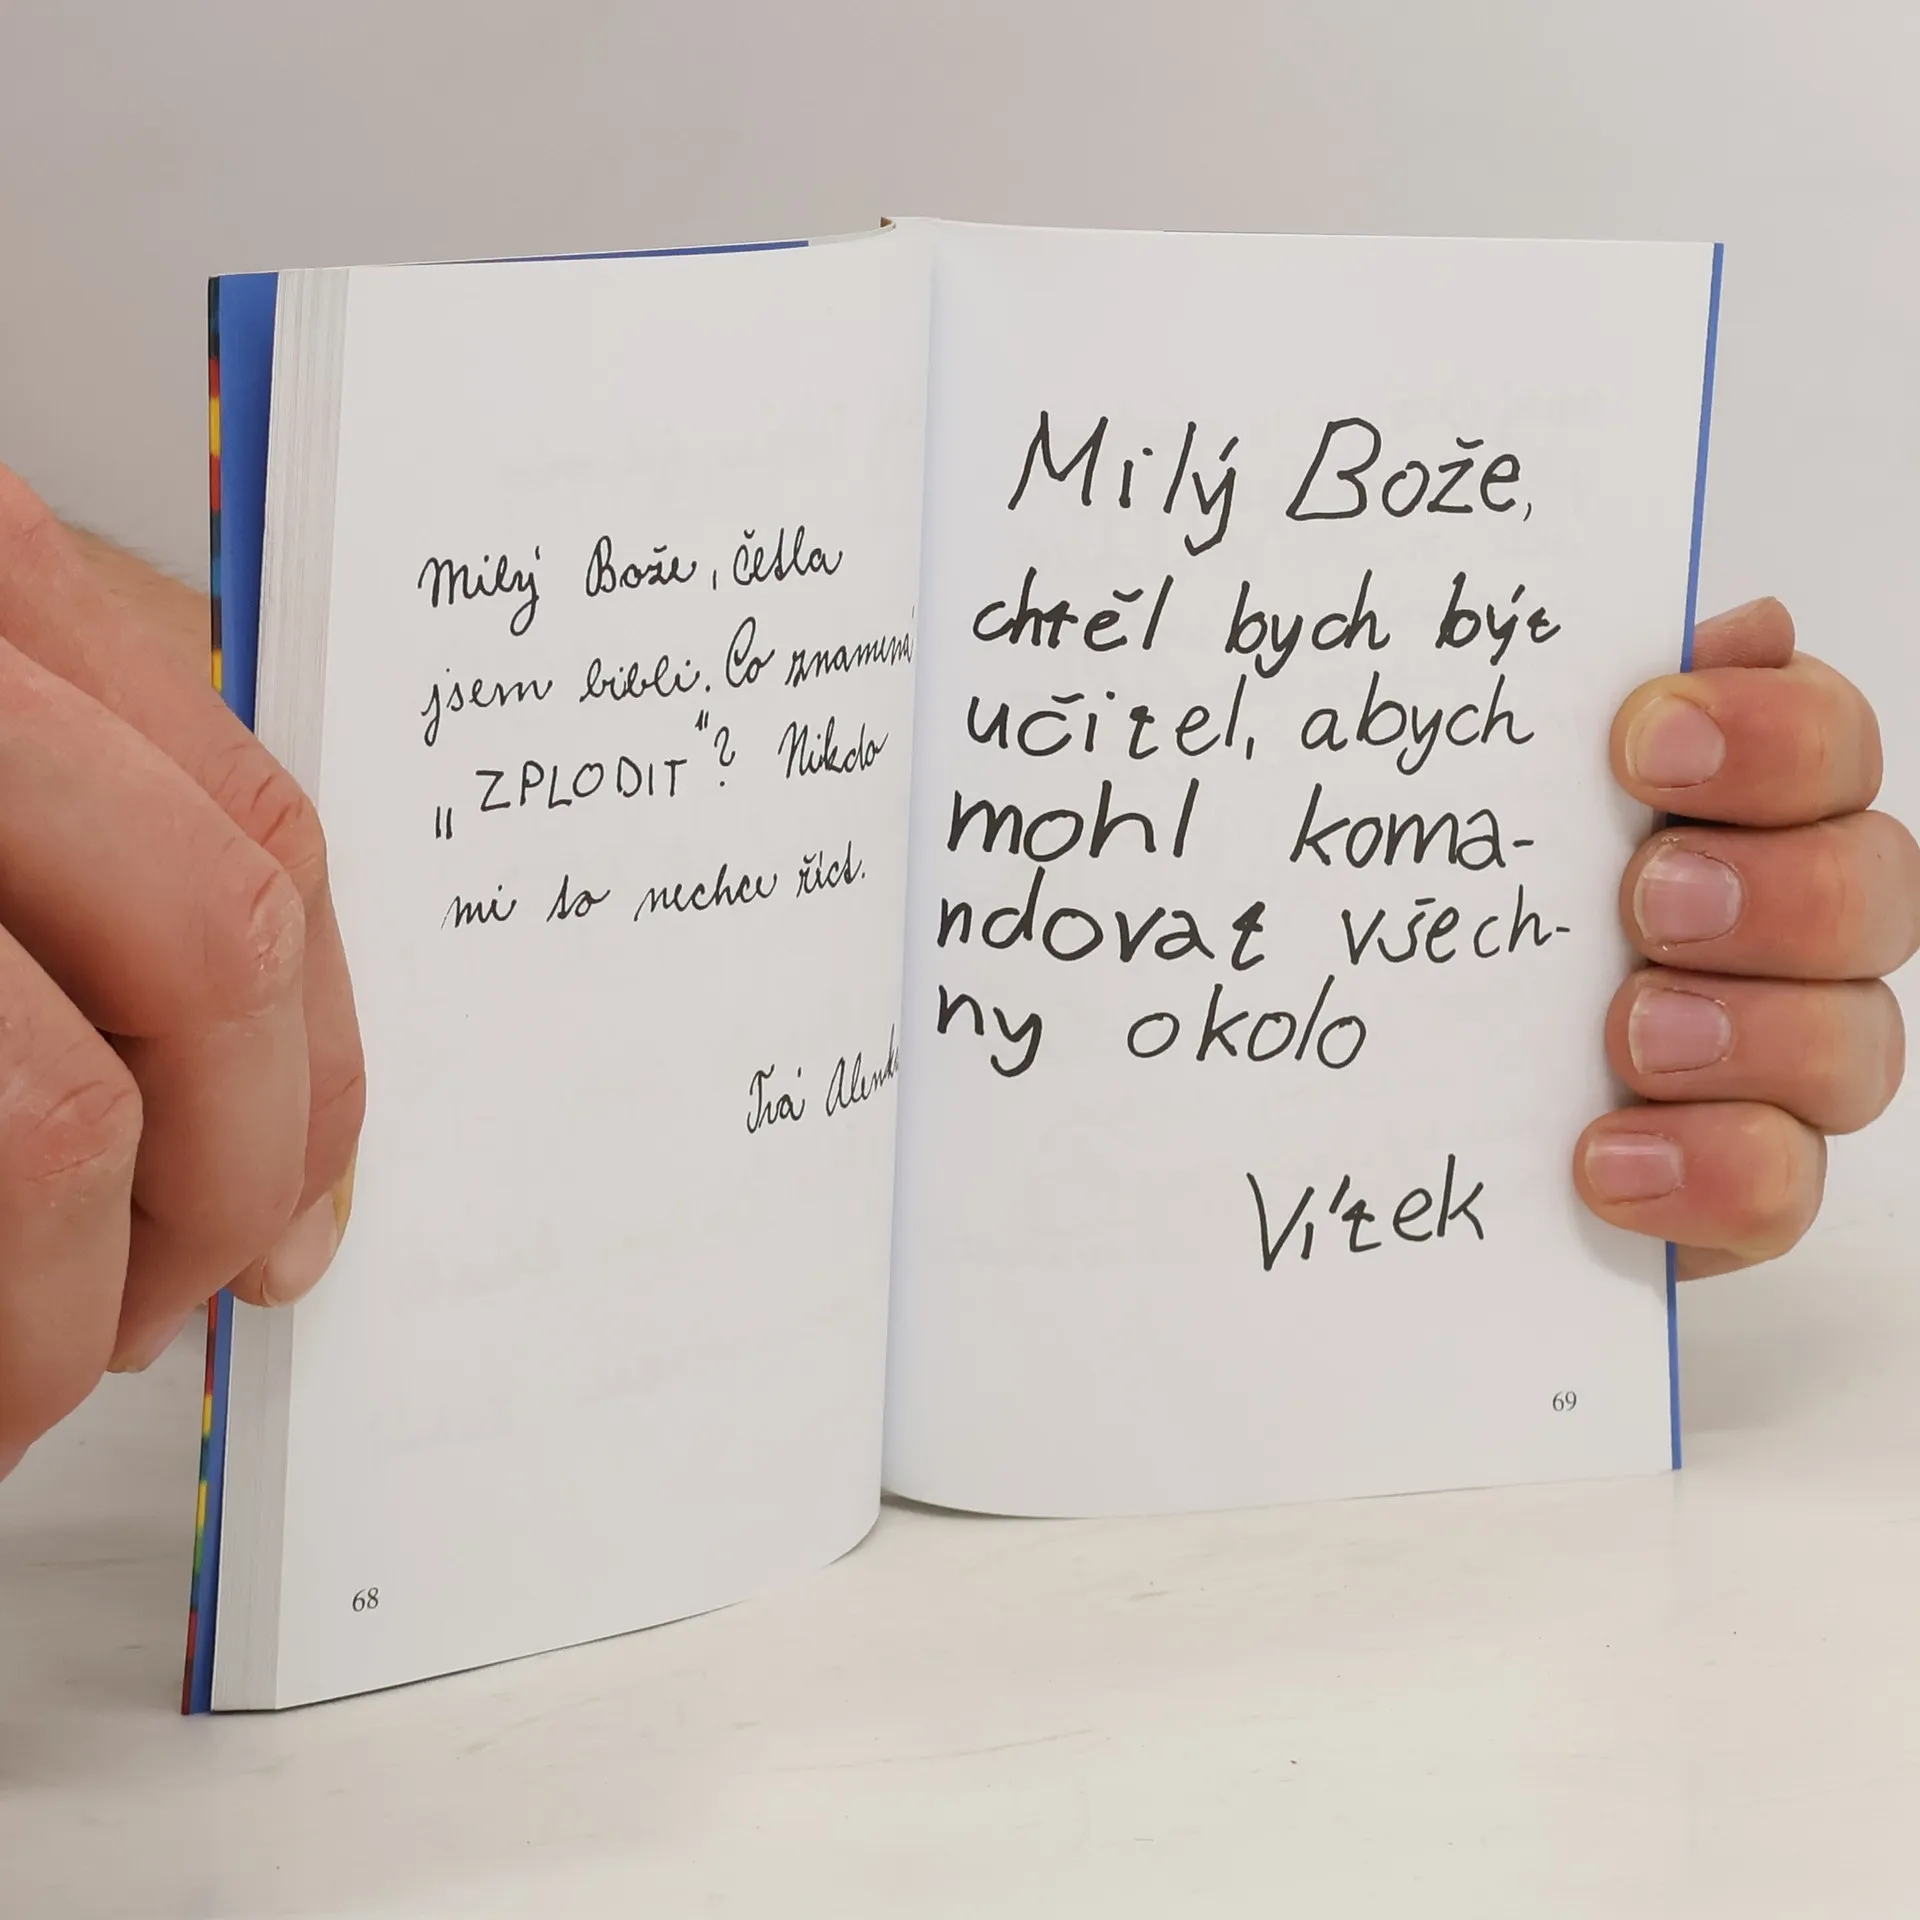 Milý Bože, četla
jsem bibli. Co znamená
„ZPLODIT"? Nikdo
mi to nechce říct.
Tvá Alenka
68
Milý Bože,
chtěl bych být
učitel, abych
mohl koma-
ndovat všech-
ny okolo
Vítek
69